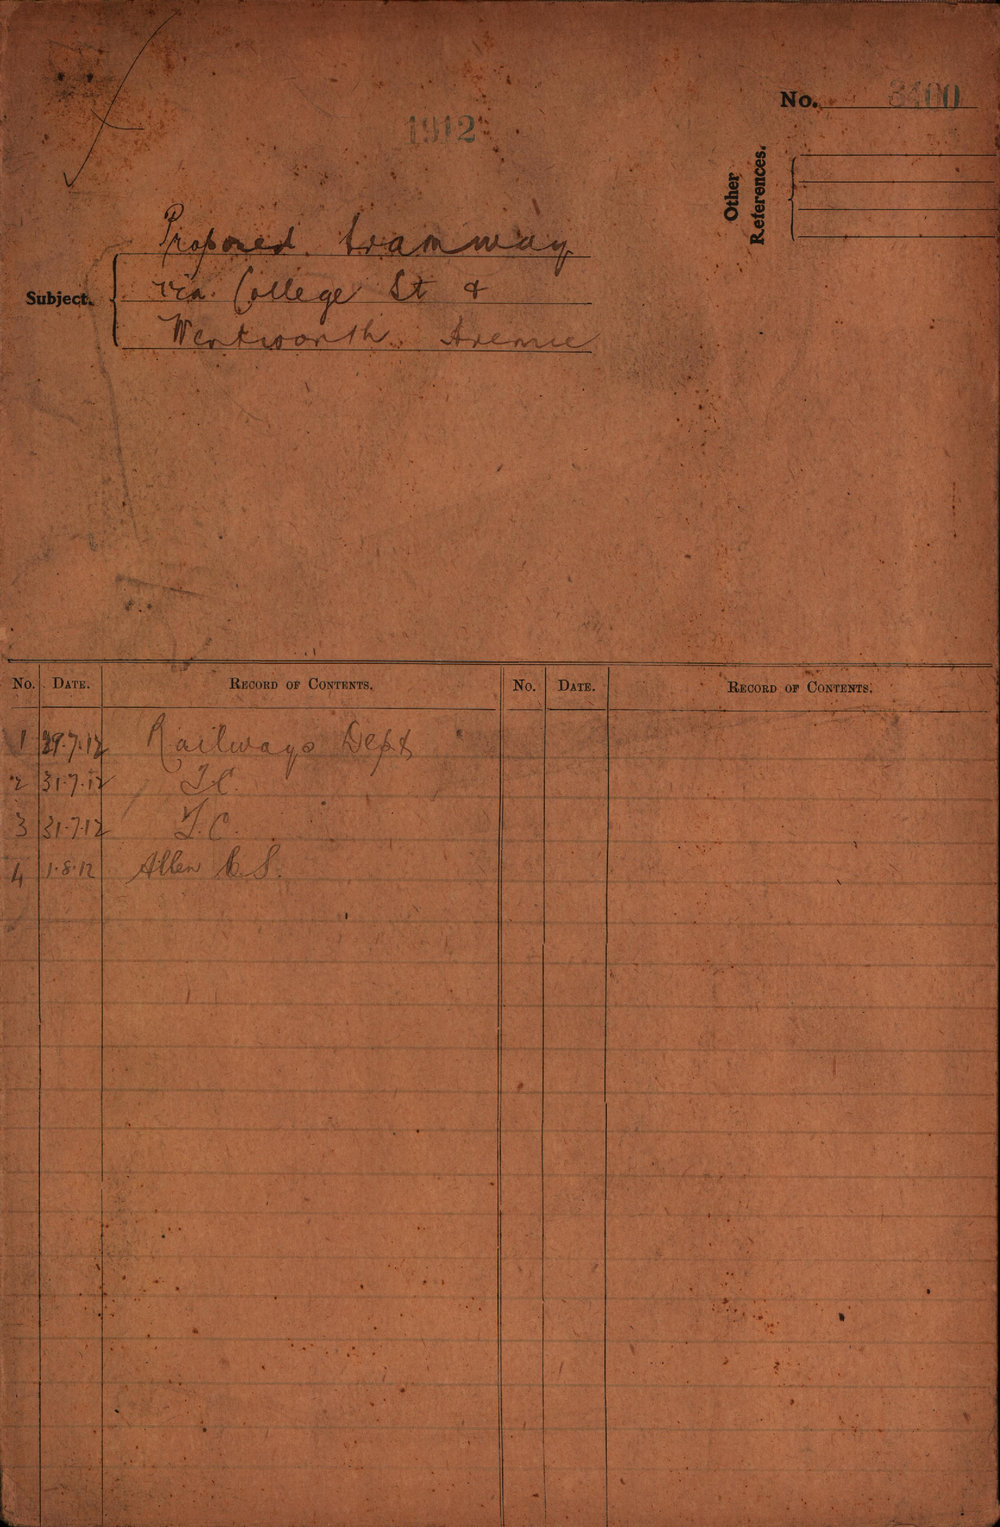 No. 3400
1912
Other
References.
Proposed tramway
Subject. via College St &
Wentworth Avenue
No. DATE. RECORD OF CONTENTS. No. DATE. RECORD OF CONTENTS.
1 29.7.12 Railways Dept
2 31.7.12 T.C.
3 31.7.12 T.C.
4 1.8.12 Allen